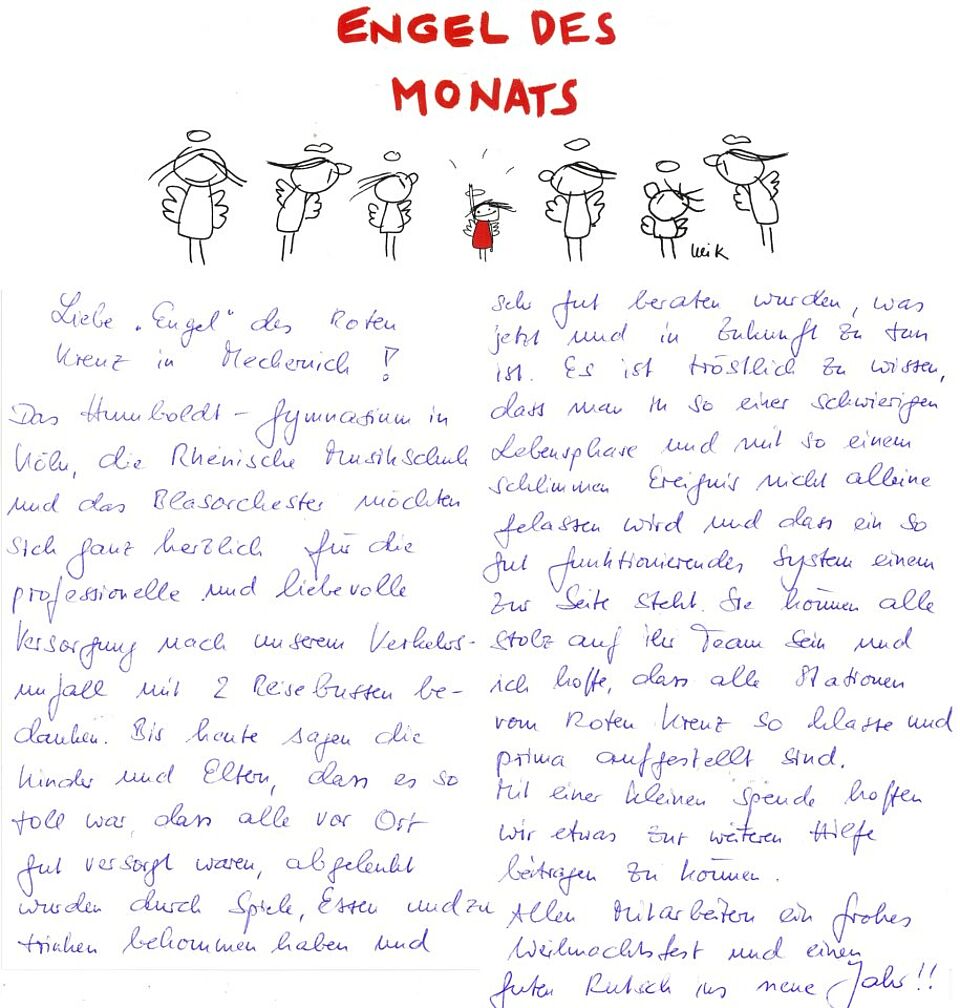 ENGEL DES
MONATS
Meik
Liebe „Engel" des Roten
Kreuz in Mechernich!
Das Humboldt-Gymnasium in
Köln, die Rheinische Musikschule
und das Blasorchester möchten
sich ganz herzlich für die
professionelle und liebevolle
Versorgung nach unserem Verkehrs-
unfall mit 2 Reisebussen be-
danken. Bis heute sagen die
Kinder und Eltern, dass es so
toll war, dass alle vor Ort
gut versorgt waren, abgelenkt
wurden durch Spiele, Essen und zu
trinken bekommen haben und
sehr gut beraten wurden, was
jetzt und in Zukunft zu tun
ist. Es ist tröstlich zu wissen,
dass man in so einer schwierigen
Lebensphase und mit so einem
schlimmen Ereignis nicht alleine
gelassen wird und dass ein so
gut funktionierendes System einem
zur Seite steht. Sie können alle
stolz auf ihr Team sein und
ich hoffe, dass alle Stationen
vom Roten Kreuz so klasse und
prima aufgestellt sind.
Mit einer kleinen Spende hoffen
wir etwas zur weiteren Hilfe
beitragen zu können.
Allen Mitarbeitern ein frohes
Weihnachtsfest und einen
guten Rutsch ins neue Jahr!!